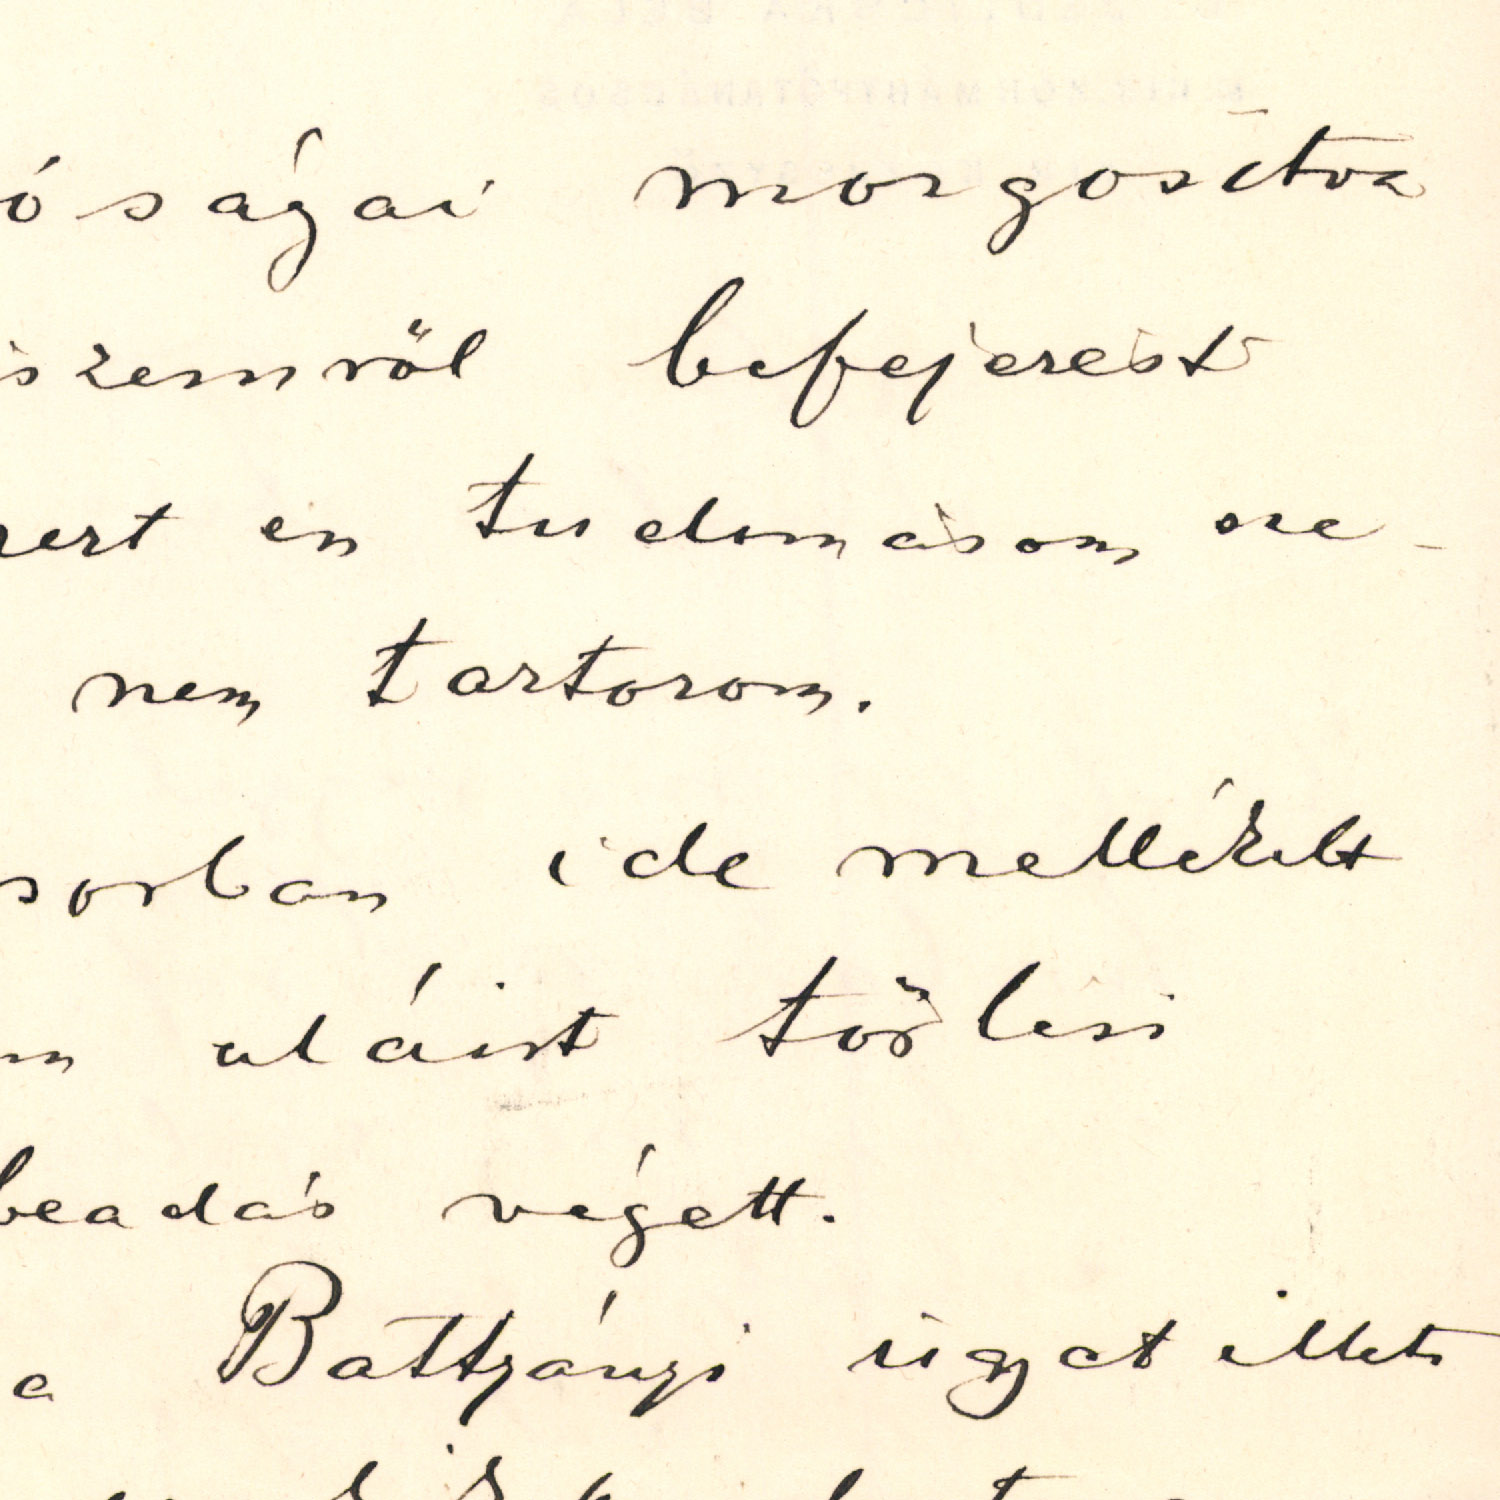 óságai morgosítva
iszemről befejerést
rert én tudomásom sze-
nem tartozom.
sorban ide mellékelt
m aláirt törlési
beadás végett.
a Battyányi ügyet illető